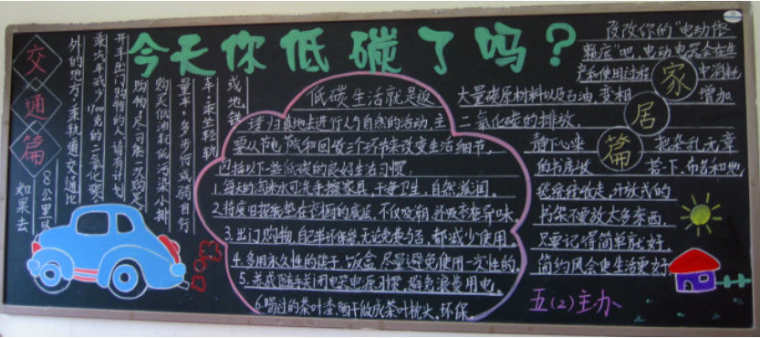 今天你低碳了吗？
交通篇
如果去
8公里
外的地方，乘轨道交通比
乘汽车减少1700克的二氧化碳
开车出门购物的人请有计划
购物尽可能一次购足
购买低油耗低污染小排
量车，多步行或骑自行
车，乘坐轻轨
或地铁
低碳生活就是返
璞归真地去进行人与自然的活动 主
要从节电 节气和回收三个环节来改变生活细节，
包括以下些低碳的良好生活习惯，
1.每天的淘米水可洗手擦家具，干净卫生，自然滋润。
2.将废旧报纸垫在衣橱的底层，不仅吸潮，还吸衣柜异味。
3.出门购物，自己带环保袋，无论免费与否，都减少使用。
4.多用永久性的筷子、饭盒，尽量避免使用一次性的。
5.养成随手关闭电器电源习惯，避免浪费用电。
6.喝过的茶叶渣，晒干做成茶叶枕头，环保。
家居篇
改改你的"电动依
赖症"吧，电动电器会在生
产和使用过程中消耗
大量碳原材料以及石油，变相增加
二氧化碳的排放。
静下心来 把杂乱无章
的书房收 若下，
书架不要放太多东西，
只要记得简单就好。
简约风会使生活更好
五(2)主办